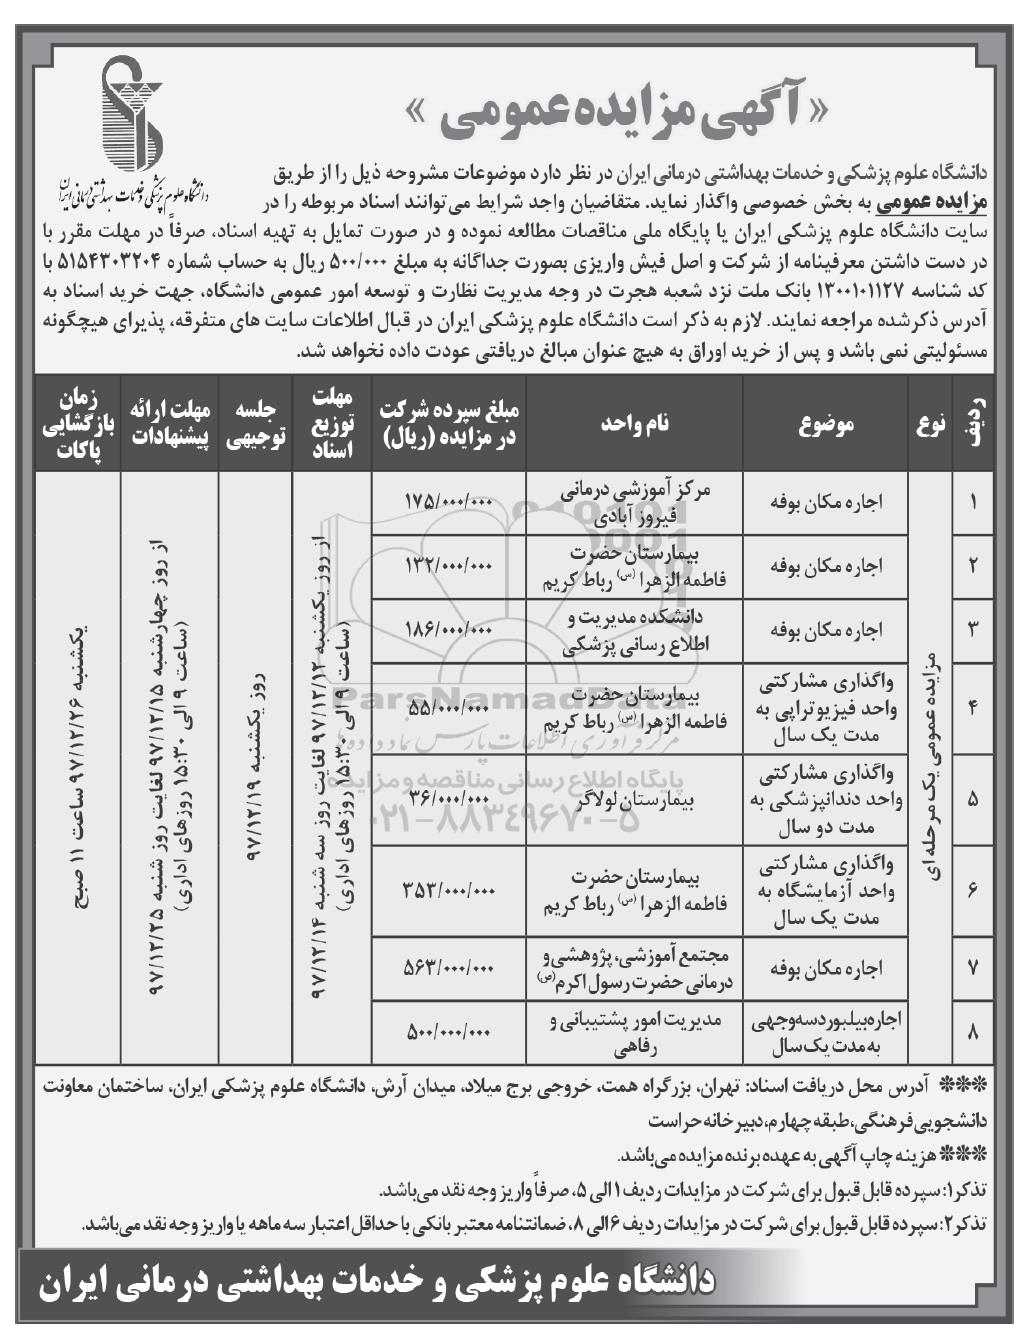 دانشگاه علوم پزشکی و خدمات بهداشتی درمانی ایران
«آگهی مزایده عمومی »
دانشگاه علوم پزشکی و خدمات بهداشتی درمانی ایران در نظر دارد موضوعات مشروحه ذیل را از طریق
مزایده عمومی به بخش خصوصی واگذار نماید. متقاضیان واجد شرایط می توانند اسناد مربوطه را در
سایت دانشگاه علوم پزشکی ایران یا پایگاه ملی مناقصات مطالعه نموده و در صورت تمایل به تهیه اسناد، صرفاً در مهلت مقرر با
در دست داشتن معرفینامه از شرکت و اصل فیش واریزی بصورت جداگانه به مبلغ ۵۰۰/۰۰۰ ریال به حساب شماره ۵۱۵۴۳۰۳۲۰۴ با
کد شناسه ۱۳۰۰۱۰۱۱۲۷ بانک ملت نزد شعبه هجرت در وجه مدیریت نظارت و توسعه امور عمومی دانشگاه، جهت خرید اسناد به
آدرس ذکرشده مراجعه نمایند. لازم به ذکر است دانشگاه علوم پزشکی ایران در قبال اطلاعات سایت های متفرقه، پذیرای هیچگونه
مسئولیتی نمی باشد و پس از خرید اوراق به هیچ عنوان مبالغ دریافتی عودت داده نخواهد شد.
ردیف
نوع
موضوع
نام واحد
مبلغ سپرده شرکت
در مزایده (ریال)
مهلت
توزیع
اسناد
جلسه
توجیهی
مهلت ارائه
پیشنهادات
زمان
بازگشایی
پاکات
مزایده عمومی یک مرحله ای
۱
اجاره مکان بوفه
مرکز آموزشی درمانی
فیروز آبادی
۱۷۵/۰۰۰/۰۰۰
۲
اجاره مکان بوفه
بیمارستان حضرت
فاطمه الزهرا (س) رباط کریم
۱۳۲/۰۰۰/۰۰۰
۳
اجاره مکان بوفه
دانشکده مدیریت و
اطلاع رسانی پزشکی
۱۸۶/۰۰۰/۰۰۰
۴
واگذاری مشارکتی
واحد فیزیوتراپی به
مدت یک سال
بیمارستان حضرت
فاطمه الزهرا (س) رباط کریم
۵۵/۰۰۰/۰۰۰
۵
واگذاری مشارکتی
واحد دندانپزشکی به
مدت دو سال
بیمارستان لولاگر
۳۶/۰۰۰/۰۰۰
۶
واگذاری مشارکتی
واحد آزمایشگاه به
مدت یک سال
بیمارستان حضرت
فاطمه الزهرا (س) رباط کریم
۳۵۳/۰۰۰/۰۰۰
۷
اجاره مکان بوفه
مجتمع آموزشی، پژوهشی و
درمانی حضرت رسول اکرم(ص)
۵۶۳/۰۰۰/۰۰۰
۸
اجاره بیلبورد سه وجهی
به مدت یک سال
مدیریت امور پشتیبانی و
رفاهی
۵۰۰/۰۰۰/۰۰۰
از روز یکشنبه ۹۷/۱۲/۱۲ لغایت روز سه شنبه ۹۷/۱۲/۱۴
(ساعت ۹ الی ۱۵:۳۰ روزهای اداری)
روز یکشنبه ۹۷/۱۲/۱۹
از روز چهارشنبه ۹۷/۱۲/۱۵ لغایت روز شنبه ۹۷/۱۲/۲۵
(ساعت ۹ الی ۱۵:۳۰ روزهای اداری)
یکشنبه ۹۷/۱۲/۲۶ ساعت ۱۱ صبح
ParsNamadData
مرکز فرآوری اطلاعات پارس نماد داده ها
پایگاه اطلاع رسانی مناقصه و مزایده
۰۲۱-۸۸۳۴۹۶۷۰-۵
*** آدرس محل دریافت اسناد: تهران، بزرگراه همت، خروجی برج میلاد، میدان آرش، دانشگاه علوم پزشکی ایران، ساختمان معاونت
دانشجویی فرهنگی، طبقه چهارم، دبیرخانه حراست
*** هزینه چاپ آگهی به عهده برنده مزایده می باشد.
تذکر۱: سپرده قابل قبول برای شرکت در مزایدات ردیف ۱ الی ۵، صرفاً واریز وجه نقد می باشد.
تذکر۲: سپرده قابل قبول برای شرکت در مزایدات ردیف ۶ الی ۸، ضمانتنامه معتبر بانکی با حداقل اعتبار سه ماهه یا واریز وجه نقد می باشد.
دانشگاه علوم پزشکی و خدمات بهداشتی درمانی ایران